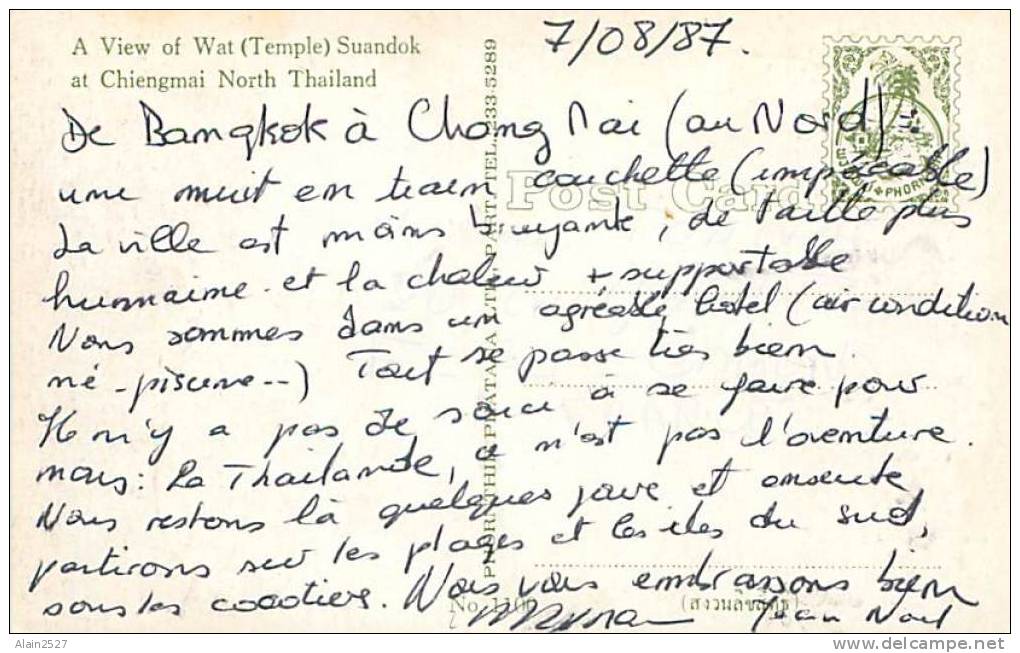 A View of Wat (Temple) Suandok
at Chiengmai North Thailand
7/08/87.
De Bangkok à Chang Mai (au Nord)
une nuit en train couchette (impécable)
La ville est moins bruyante, de taille plus
humaine et la chaleur + supportable
Nous sommes dans un agréable hotel (air condition
né - piscine --) Tout se passe très bien.
Il n'y a pas de souci à se faire pour
nous: La Thailande, ce n'est pas l'aventure.
Nous restons là quelques jours et ensuite
partirons sur les plages et les iles du sud,
sous les cocotiers. Nous vous embrassons bien
Jean Noel
Post Card
PHORNTHIP PHATTANA LTD., PART. TEL. 233-5289
No. 1106
(สงวนลิขสิทธิ์)
Alain2527
delcampe.net